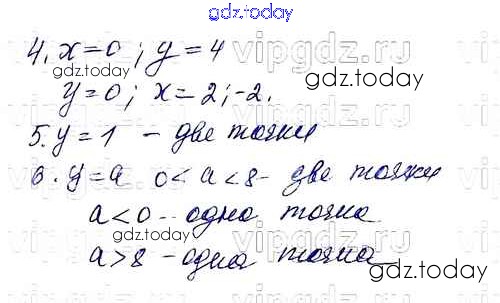 gdz.today
4. x=0; y=4
gdz.today
y=0; x=2;-2.
5. y=1 - две точки
gdz.today
6. y=a 0<a<8- две точки
a<0 - одна точка
gdz.today
a>8 - одна точка
gdz.today